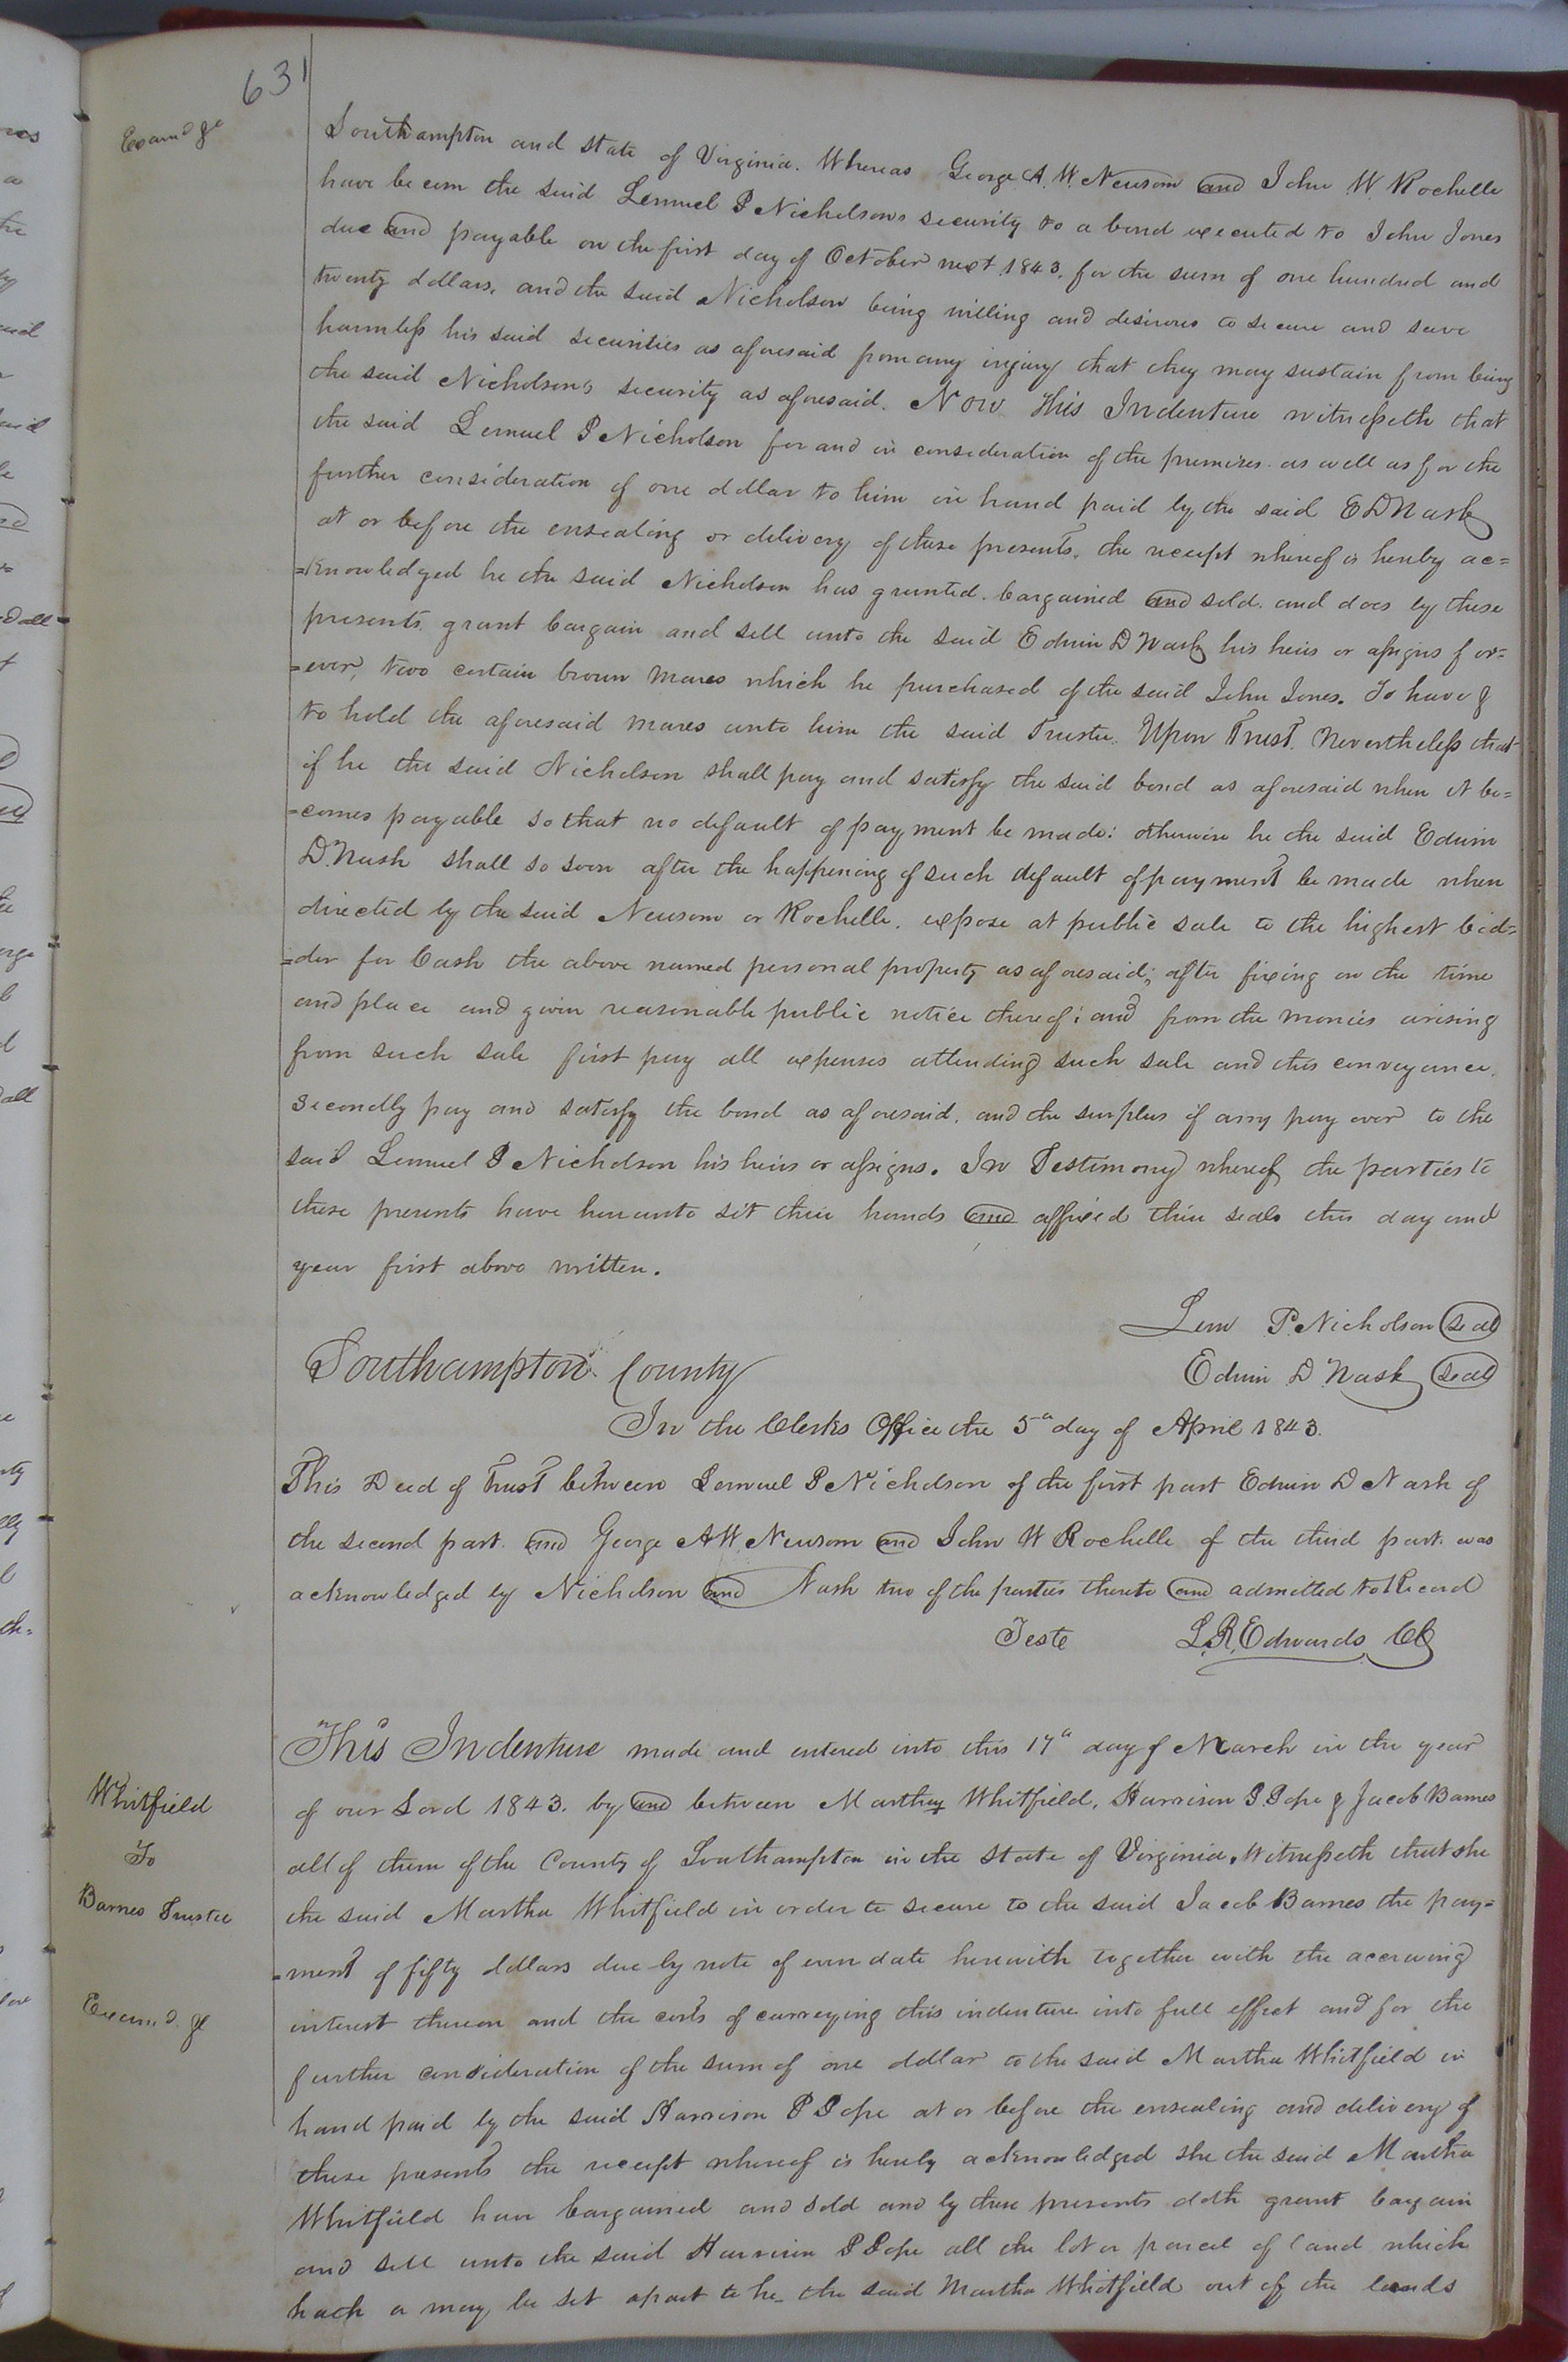 631
Examd ge
Southampton and state of Virginia. Whereas George A. W. Newsom and John W. Rochelle
have becom the said Lemuel P Nicholsons security to a bond executed to John Jones
due and payable on the first day of October next 1843, for the sum of one hundred and
twenty dollars, and the said Nicholson being willing and desirous to secure and save
harmless his said securities as aforesaid from any injury that they may sustain from being
the said Nicholsons security as aforesaid. Now This Indenture witnesseth that
the said Lemuel P Nicholson for and in consideration of the premises. as well as for the
further consideration of one dollar to him in hand paid by the said E D Nash
at or before the ensealing or delivery of these presents, the receipt whereof is hereby ac=
=knowledged he the said Nicholson has granted. bargained and sold. and does by these
presents. grant bargain and sell unto the said Edwin D Nash his heirs or assigns for=
=ever, two certain brown mares which he purchased of the said John Jones. To have &
to hold the aforesaid mares unto him the said Trustee. Upon Trust. Nevertheless that
if he the said Nicholson shall pay and satisfy the said bond as aforesaid when it be=
=comes payable so that no default of payment be made: otherwise he the said Edwin
D. Nash shall so soon after the happening of such default of payment be made when
directed by the said Newsom or Rochelle. expose at public sale to the highest bid=
=der for Cash the above named personal property as aforesaid; after fixing on the time
and place and givin reasonable public notice thereof; and from the monies arising
from such sale first pay all expenses attending such sale and this conveyance.
Secondly pay and satisfy the bond as aforesaid. and the surplus if any pay over to the
said Lemuel P Nicholson his heirs or assigns. In Testimony whereof the parties to
these presents have hereunto set their hands and affixed their seals this day and
year first above written.
Lem P. Nicholson Seal
Edwin D. Nash Seal
Southampton County
In the Clerks Office the 5a day of April 1843.
This Deed of Trust between Lemuel P Nicholson of the first part Edwin D Nash of
the second part. and George A W. Newsom and John W Rochelle of the third part. was
acknowledged by Nicholson and Nash two of the parties thereto and admitted to Record
Teste L. R. Edwards CC
Whitfield
To
Barnes Trustee
Examd. ge
This Indenture made and entered into this 17a day of March in the year
of our Lord 1843. by and between Martha Whitfield, Harrison P. Pope & Jacob Barnes
all of them of the County of Southampton in the State of Virginia. Witnesseth that she
the said Martha Whitfield in order to secure to the said Jacob Barnes the pay=
=ment of fifty dollars due by note of even date herewith together with the accrewing
interest thereon and the costs of carreying this indenture into full effect and for the
further consideration of the sum of one dollar to the said Martha Whitfield in
hand paid by the said Harrison P Pope at or before the ensealing and delivery of
these presents the receipt whereof is hereby acknowledged she the said Martha
Whitfield have bargained and sold and by these presents doth grant bargain
and sell unto the said Harrison P Pope all the lot or parcel of land which
hath or may be set apart to he the said Martha Whitfield out of the lands